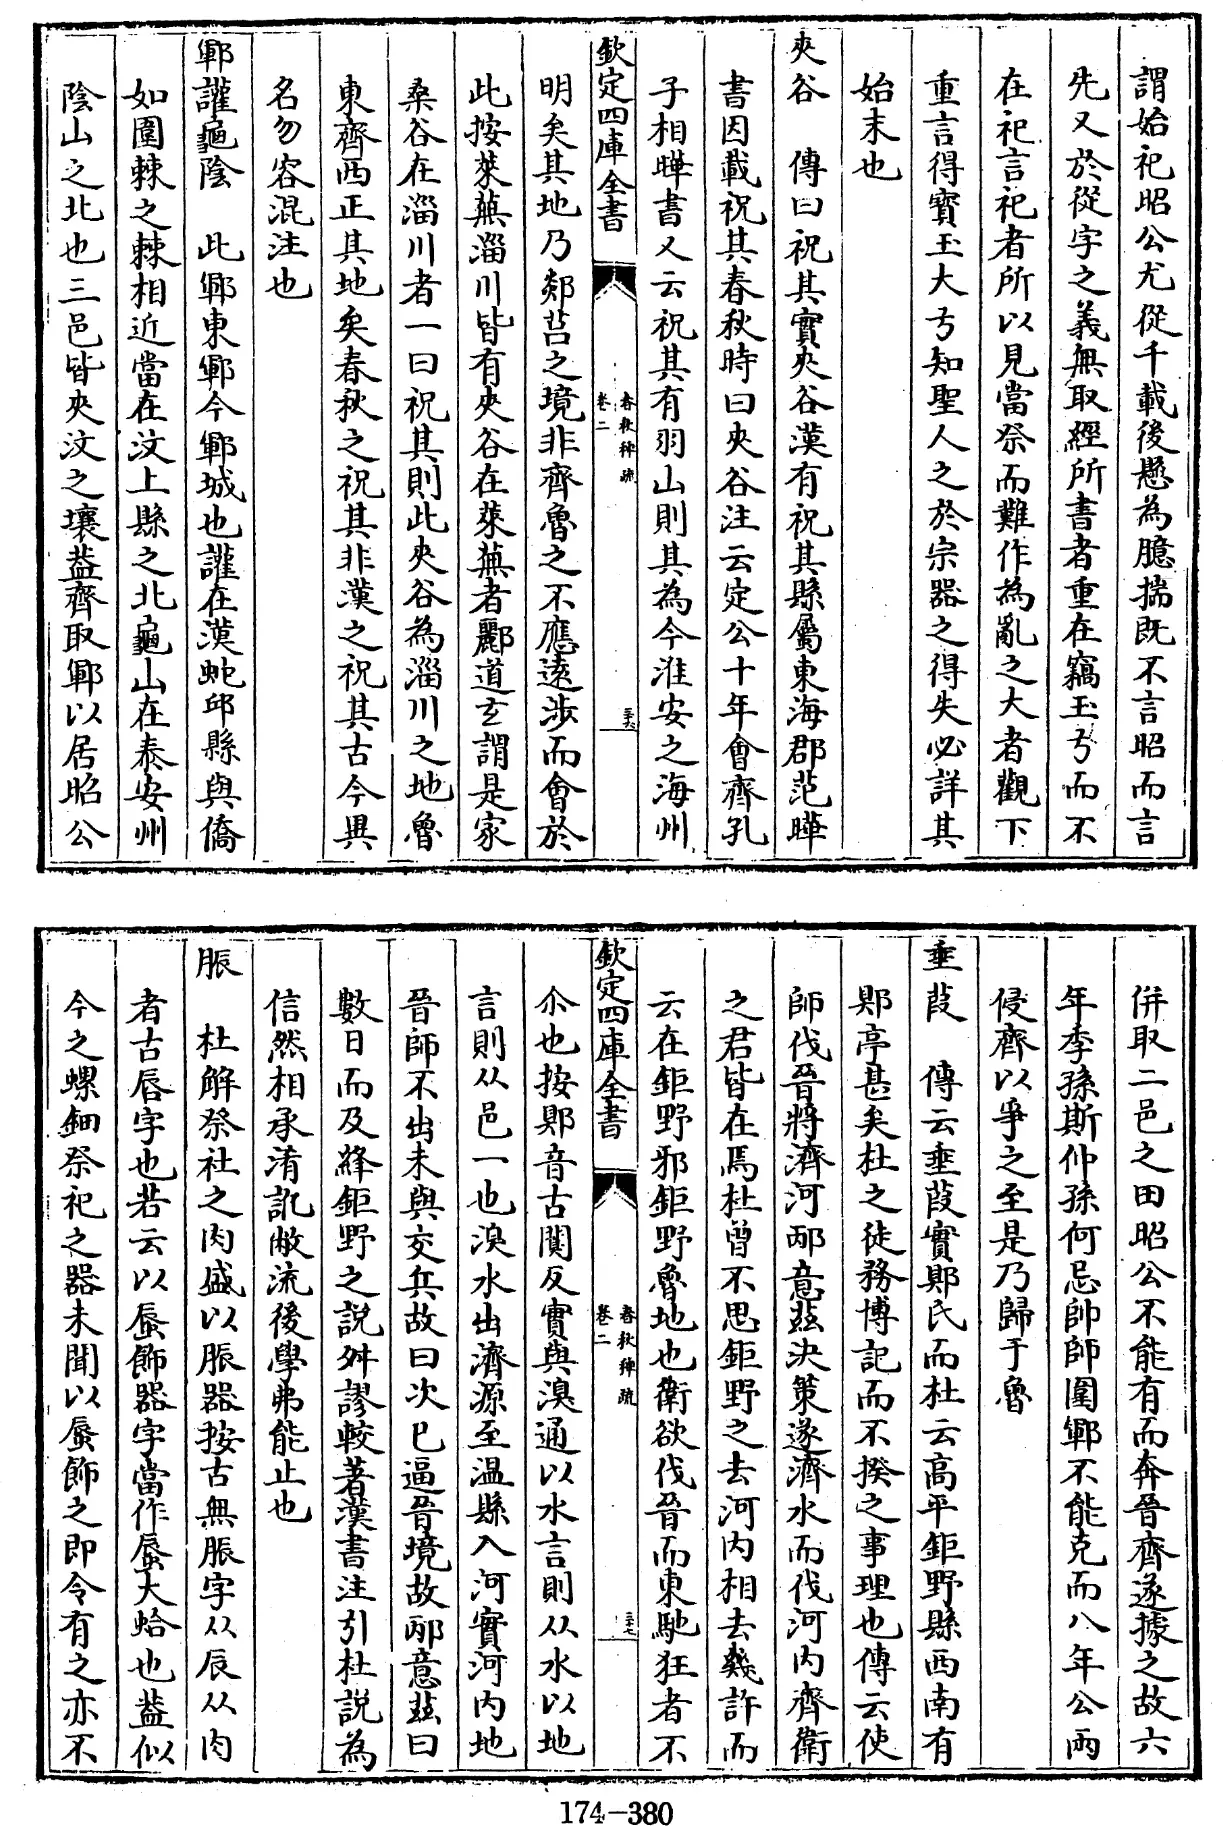 謂始祀昭公尤從千載後懸為臆揣既不言昭而言
先又於從字之義無取經所書者重在竊玉弓而不
在祀言祀者所以見當祭而難作為亂之大者觀下
重言得寶玉大弓知聖人之於宗器之得失必詳其
始末也
夾谷　傳曰祝其實夾谷漢有祝其縣屬東海郡范曄
書因載祝其春秋時曰夾谷注云定公十年會齊孔
子相曄書又云祝其有羽山則其為今淮安之海州
欽定四庫全書
春秋稗疏
卷二
三十六
明矣其地乃郯莒之境非齊魯之不應遠涉而會於
此按萊蕪淄川皆有夾谷在萊蕪者酈道玄謂是家
桑谷在淄川者一曰祝其則此夾谷為淄川之地魯
東齊西正其地矣春秋之祝其非漢之祝其古今異
名勿容混注也
鄆讙龜陰　此鄆東鄆今鄆城也讙在漢蛇邱縣與僑
如圍棘之棘相近當在汶上縣之北龜山在泰安州
陰山之北也三邑皆夾汶之壤蓋齊取鄆以居昭公
併取二邑之田昭公不能有而奔晉齊遂據之故六
年季孫斯仲孫何忌帥師圍鄆不能克而八年公兩
侵齊以爭之至是乃歸于魯
垂葭　傳云垂葭實郹氏而杜云高平鉅野縣西南有
郹亭甚矣杜之徒務博記而不揆之事理也傳云使
師伐晉將濟河邴意茲決策遂濟水而伐河内齊衛
之君皆在焉杜曾不思鉅野之去河内相去幾許而
云在鉅野邪鉅野魯地也衛欲伐晉而東馳狂者不
欽定四庫全書
春秋稗疏
卷二
三十七
尒也按郹音古闃反實與湨通以水言則从水以地
言則从邑一也湨水出濟源至温縣入河實河内地
晉師不出未與交兵故曰次已逼晉境故邴意茲曰
數日而及絳鉅野之説舛謬較著漢書注引杜説為
信然相承淆訛敝流後學弗能止也
脤　杜解祭社之肉盛以脤器按古無脤字从辰从肉
者古唇字也若云以蜃飾器字當作蜃大蛤也蓋似
今之螺鈿祭祀之器未聞以蜃飾之即令有之亦不
174-380